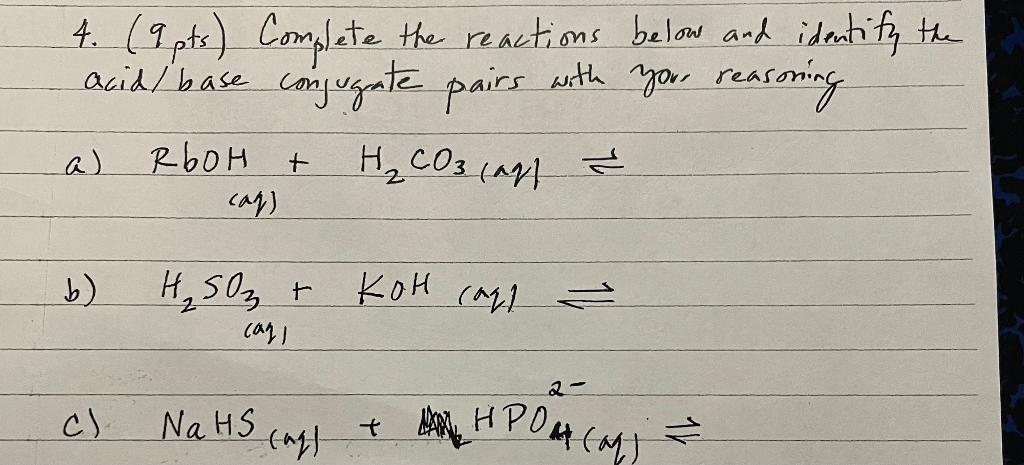 4. (9 pts) Complete the reactions below and identify the
acid/base conjugate pairs with your reasoning
a) RbOH + H₂CO₃ (aq) ⇌
(aq)
b) H₂SO₃ + KOH (aq) ⇌
(aq)
c) NaHS (aq) + HPO₄²⁻ (aq) ⇌